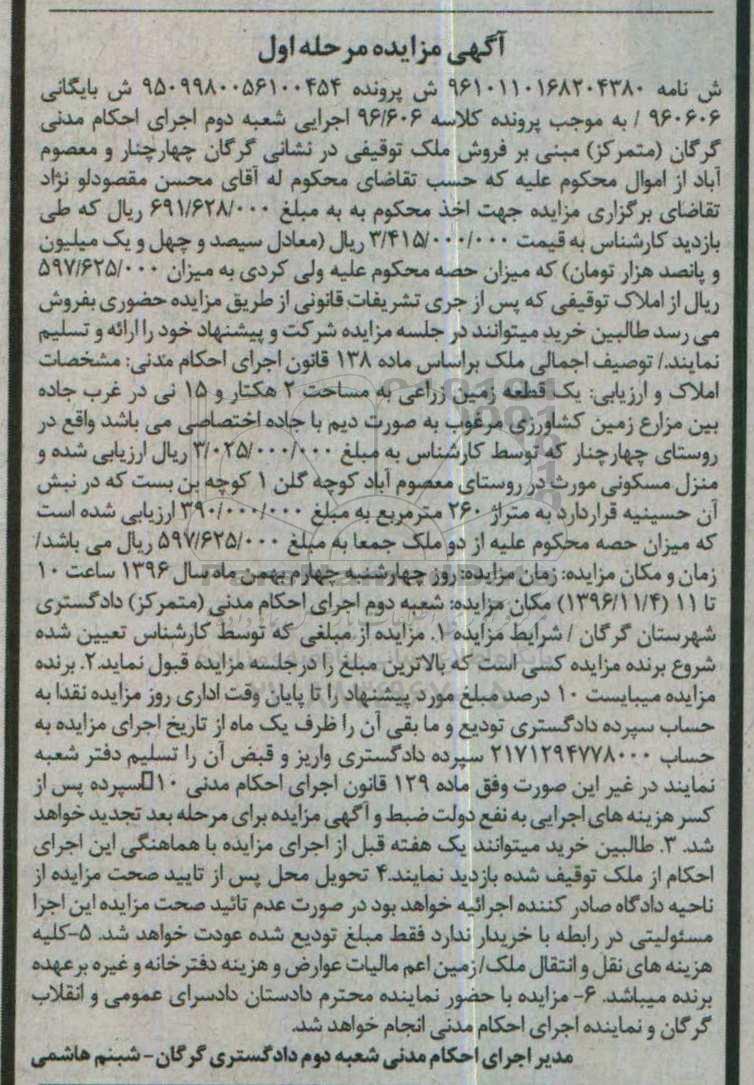 آگهی مزایده مرحله اول
ش نامه ۹۶۱۰۱۱۰۱۶۸۲۰۴۳۸۰ ش پرونده ۹۵۰۹۹۸۰۰۵۶۱۰۰۴۵۴ ش بایگانی
۹۶۰۶۰۶ / به موجب پرونده کلاسه ۹۶/۶۰۶ اجرایی شعبه دوم اجرای احکام مدنی
گرگان (متمرکز) مبنی بر فروش ملک توقیفی در نشانی گرگان چهارچنار و معصوم
آباد از اموال محکوم علیه که حسب تقاضای محکوم له آقای محسن مقصودلو نژاد
تقاضای برگزاری مزایده جهت اخذ محکوم به به مبلغ ۶۹۱/۶۲۸/۰۰۰ ریال که طی
بازدید کارشناس به قیمت ۳/۴۱۵/۰۰۰/۰۰۰ ریال (معادل سیصد و چهل و یک میلیون
و پانصد هزار تومان) که میزان حصه محکوم علیه ولی کردی به میزان ۵۹۷/۶۲۵/۰۰۰
ریال از املاک توقیفی که پس از جری تشریفات قانونی از طریق مزایده حضوری بفروش
می رسد طالبین خرید میتوانند در جلسه مزایده شرکت و پیشنهاد خود را ارائه و تسلیم
نمایند./ توصیف اجمالی ملک براساس ماده ۱۳۸ قانون اجرای احکام مدنی: مشخصات
املاک و ارزیابی: یک قطعه زمین زراعی به مساحت ۲ هکتار و ۱۵ نی در غرب جاده
بین مزارع زمین کشاورزی مرغوب به صورت دیم با جاده اختصاصی می باشد واقع در
روستای چهارچنار که توسط کارشناس به مبلغ ۳/۰۲۵/۰۰۰/۰۰۰ ریال ارزیابی شده و
منزل مسکونی مورث در روستای معصوم آباد کوچه گلن ۱ کوچه بن بست که در نبش
آن حسینیه قراردارد به متراژ ۲۶۰ مترمربع به مبلغ ۳۹۰/۰۰۰/۰۰۰ ارزیابی شده است
که میزان حصه محکوم علیه از دو ملک جمعا به مبلغ ۵۹۷/۶۲۵/۰۰۰ ریال می باشد/
زمان و مکان مزایده: زمان مزایده: روز چهارشنبه چهارم بهمن ماه سال ۱۳۹۶ ساعت ۱۰
تا ۱۱ (۱۳۹۶/۱۱/۴) مکان مزایده: شعبه دوم اجرای احکام مدنی (متمرکز) دادگستری
شهرستان گرگان / شرایط مزایده ۱. مزایده از مبلغی که توسط کارشناس تعیین شده
شروع برنده مزایده کسی است که بالاترین مبلغ را در جلسه مزایده قبول نماید.۲. برنده
مزایده میبایست ۱۰ درصد مبلغ مورد پیشنهاد را تا پایان وقت اداری روز مزایده نقدا به
حساب سپرده دادگستری تودیع و ما بقی آن را ظرف یک ماه از تاریخ اجرای مزایده به
حساب ۲۱۷۱۲۹۴۷۷۸۰۰۰ سپرده دادگستری واریز و قبض آن را تسلیم دفتر شعبه
نمایند در غیر این صورت وفق ماده ۱۲۹ قانون اجرای احکام مدنی ۱۰ سپرده پس از
کسر هزینه های اجرایی به نفع دولت ضبط و آگهی مزایده برای مرحله بعد تجدید خواهد
شد. ۳. طالبین خرید میتوانند یک هفته قبل از اجرای مزایده با هماهنگی این اجرای
احکام از ملک توقیف شده بازدید نمایند.۴ تحویل محل پس از تایید صحت مزایده از
ناحیه دادگاه صادر کننده اجرائیه خواهد بود در صورت عدم تائید صحت مزایده این اجرا
مسئولیتی در رابطه با خریدار ندارد فقط مبلغ تودیع شده عودت خواهد شد. ۵-کلیه
هزینه های نقل و انتقال ملک/زمین اعم مالیات عوارض و هزینه دفترخانه و غیره بر عهده
برنده میباشد. ۶- مزایده با حضور نماینده محترم دادستان دادسرای عمومی و انقلاب
گرگان و نماینده اجرای احکام مدنی انجام خواهد شد.
مدیر اجرای احکام مدنی شعبه دوم دادگستری گرگان- شبنم هاشمی